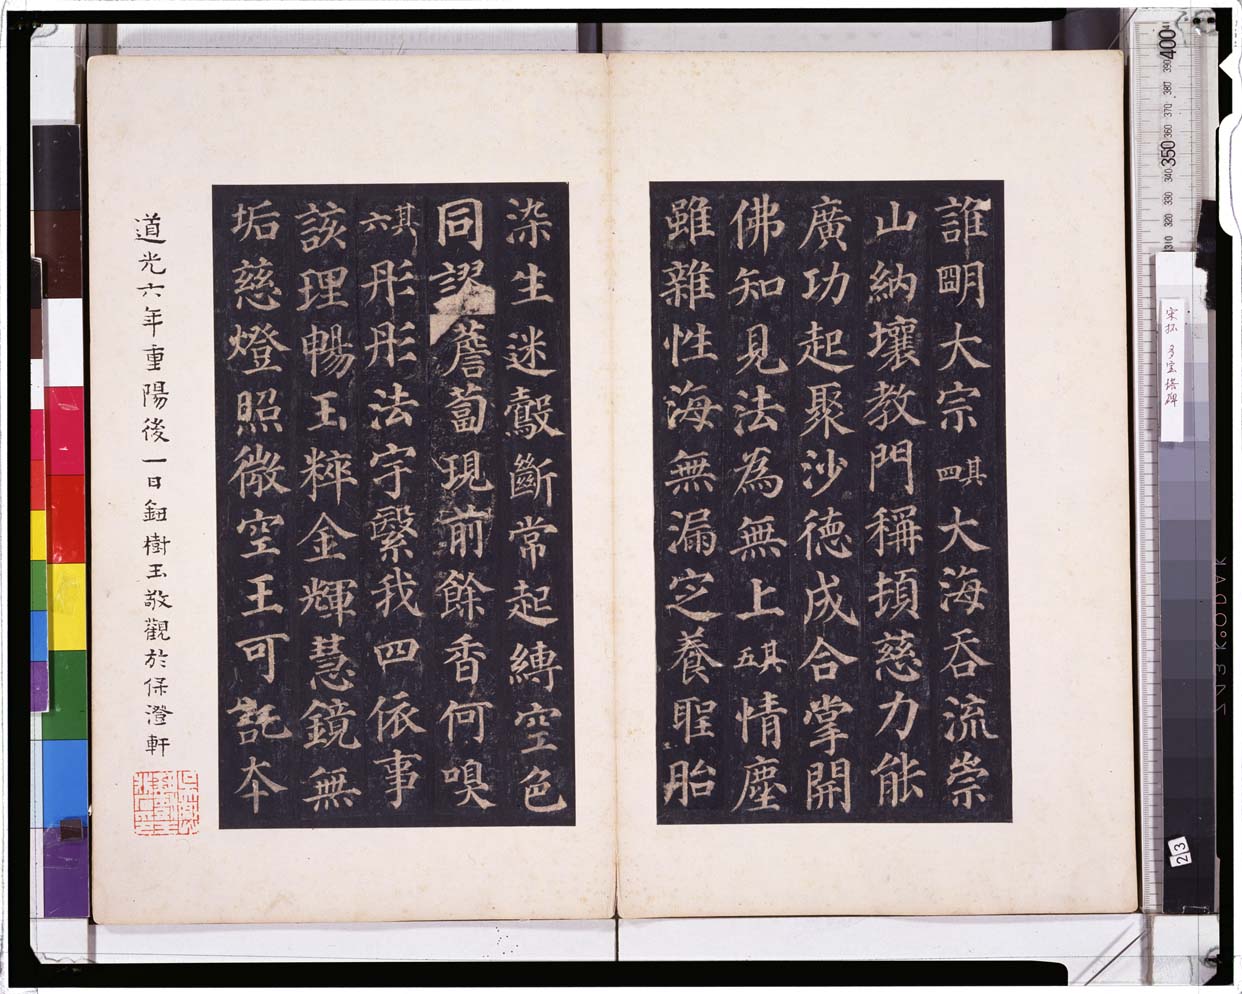 誰明大宗其四大海吞流崇
山納壤教門稱頓慈力能
廣功起聚沙德成合掌開
佛知見法為無上其五情塵
雖雜性海無漏定養聖胎
染生迷鷇斷常起縛空色
同謬薝蔔現前餘香何嗅
其六彤彤法宇繄我四依事
該理暢玉粹金輝慧鏡無
垢慈燈照微空王可託本
道光六年重陽後一日鈕樹玉敬觀於保澄軒
宋拓 多寶塔碑
400
390
380
370
360
350
340
330
320
310
23
KODAK